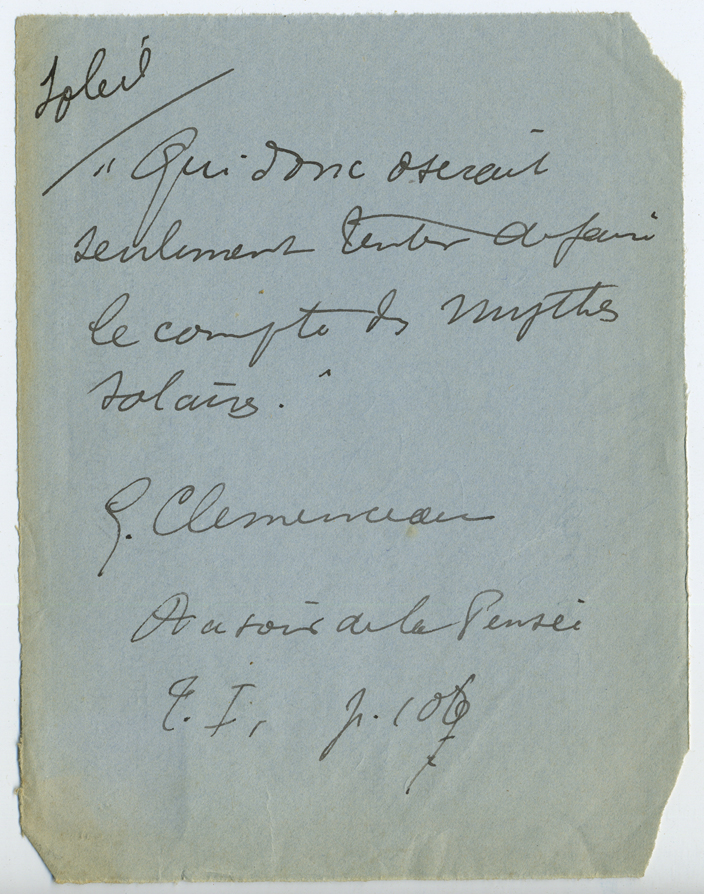 Soleil
" Qui donc oserait
seulement tenter de faire
le compte des mythes
solaires. "
G. Clemenceau
Au soir de la Pensée
T. I, p.